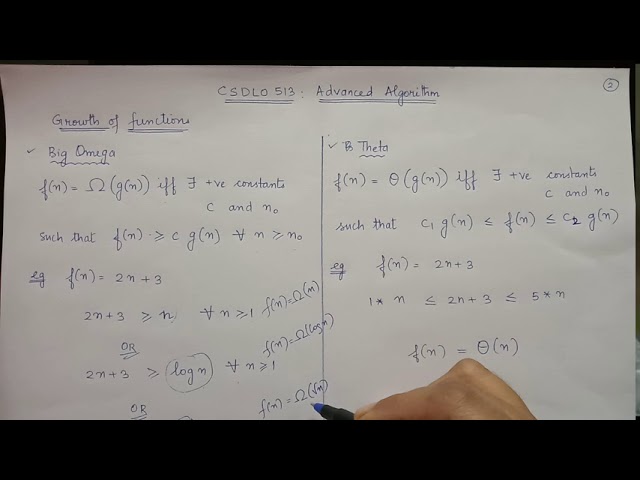 CSDLO 513 : Advanced Algorithm
②
Growth of functions
✓ Big Omega
f(n) = Ω(g(n)) iff ∃ +ve constants
c and n₀
such that f(n) ≥ c g(n) ∀ n ≥ n₀
eg f(n) = 2n + 3
2n+3 ≥ n, ∀ n ≥ 1 f(n) = Ω(n)
OR
f(n) = Ω(log n)
2n+3 ≥ log n ∀ n ≥ 1
OR
f(n) = Ω(√n)
✓ B Theta
f(n) = θ(g(n)) iff ∃ +ve constants
c and n₀
such that c₁ g(n) ≤ f(n) ≤ c₂ g(n)
eg f(n) = 2n+3
1 * n ≤ 2n+3 ≤ 5 * n
f(n) = θ(n)